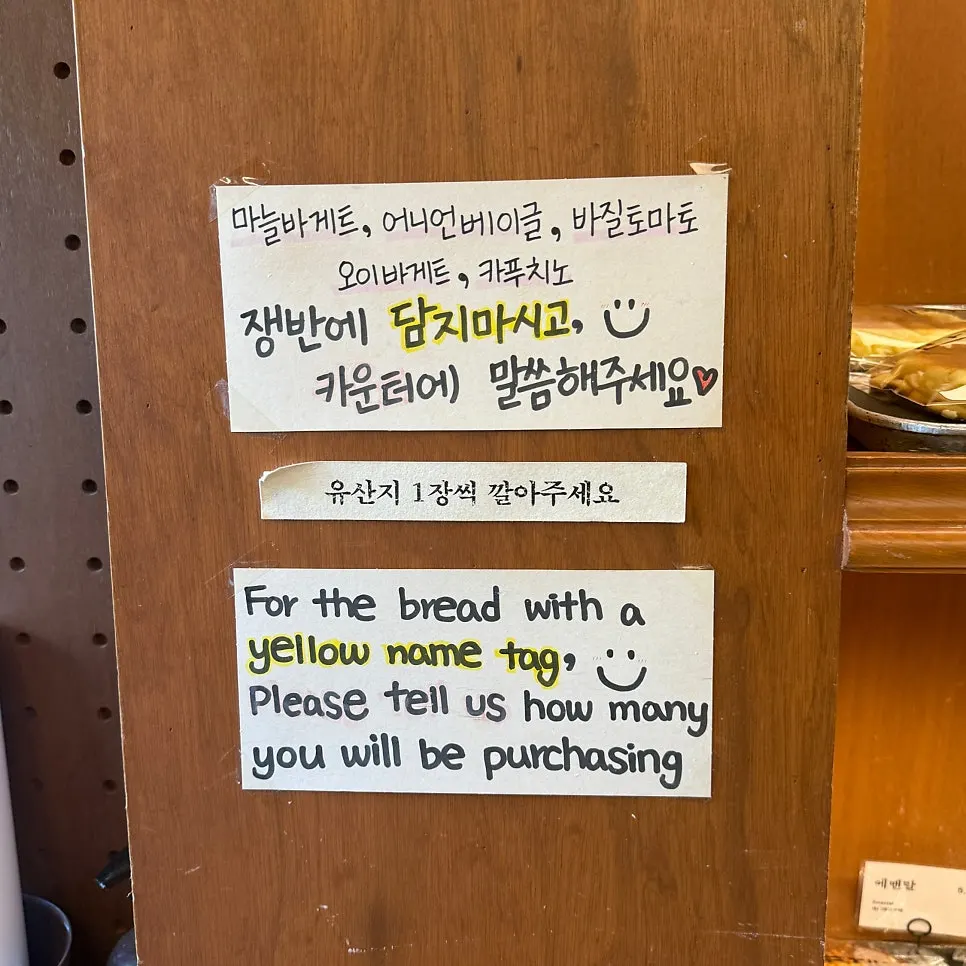 마늘바게트, 어니언베이글, 바질토마토
오이바게트, 카푸치노
쟁반에 담지마시고,
카운터에 말씀해주세요
유산지 1장씩 깔아주세요
For the bread with a
yellow name tag,
Please tell us how many
you will be purchasing
에멘탈